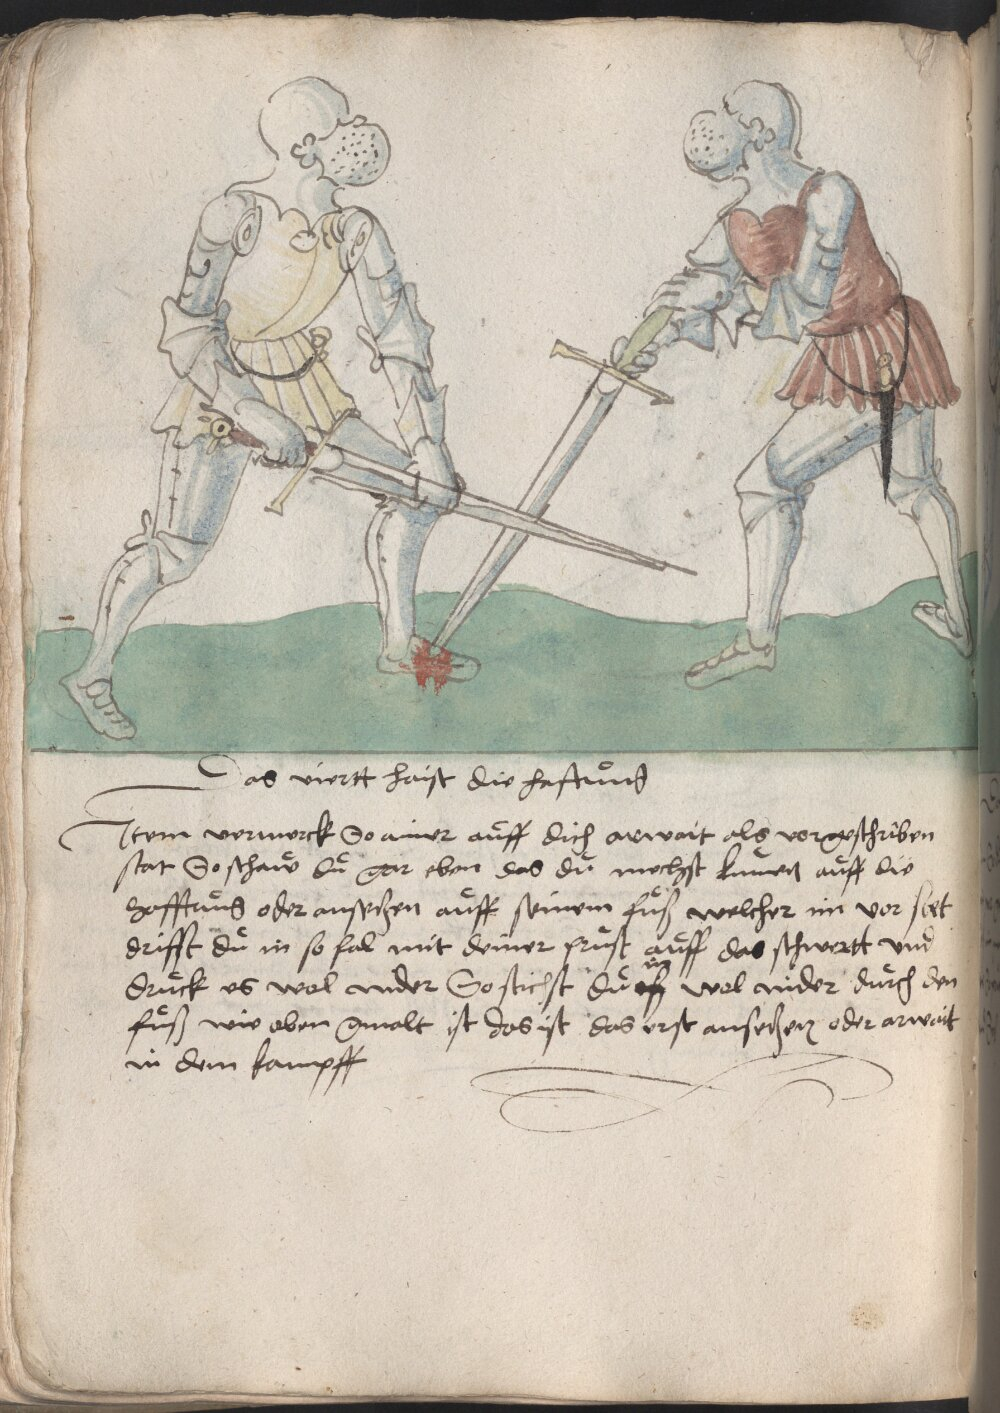 Das viertt haist die haftung
Item vermerck So ainer auff dich arwait als vorgeschriben
stat So schaw du gar eben das du mechst kumen auff die
hafftung oder ansetzen auff seinem fuß welcher im vor stet
drifft du in so fal mit deiner prust auff das schwertt vnd
druck es wol nider So stichst du in wol nider durch den
fuß wie oben gmalt ist das ist das erst ansetzen oder arwait
in dem kampff